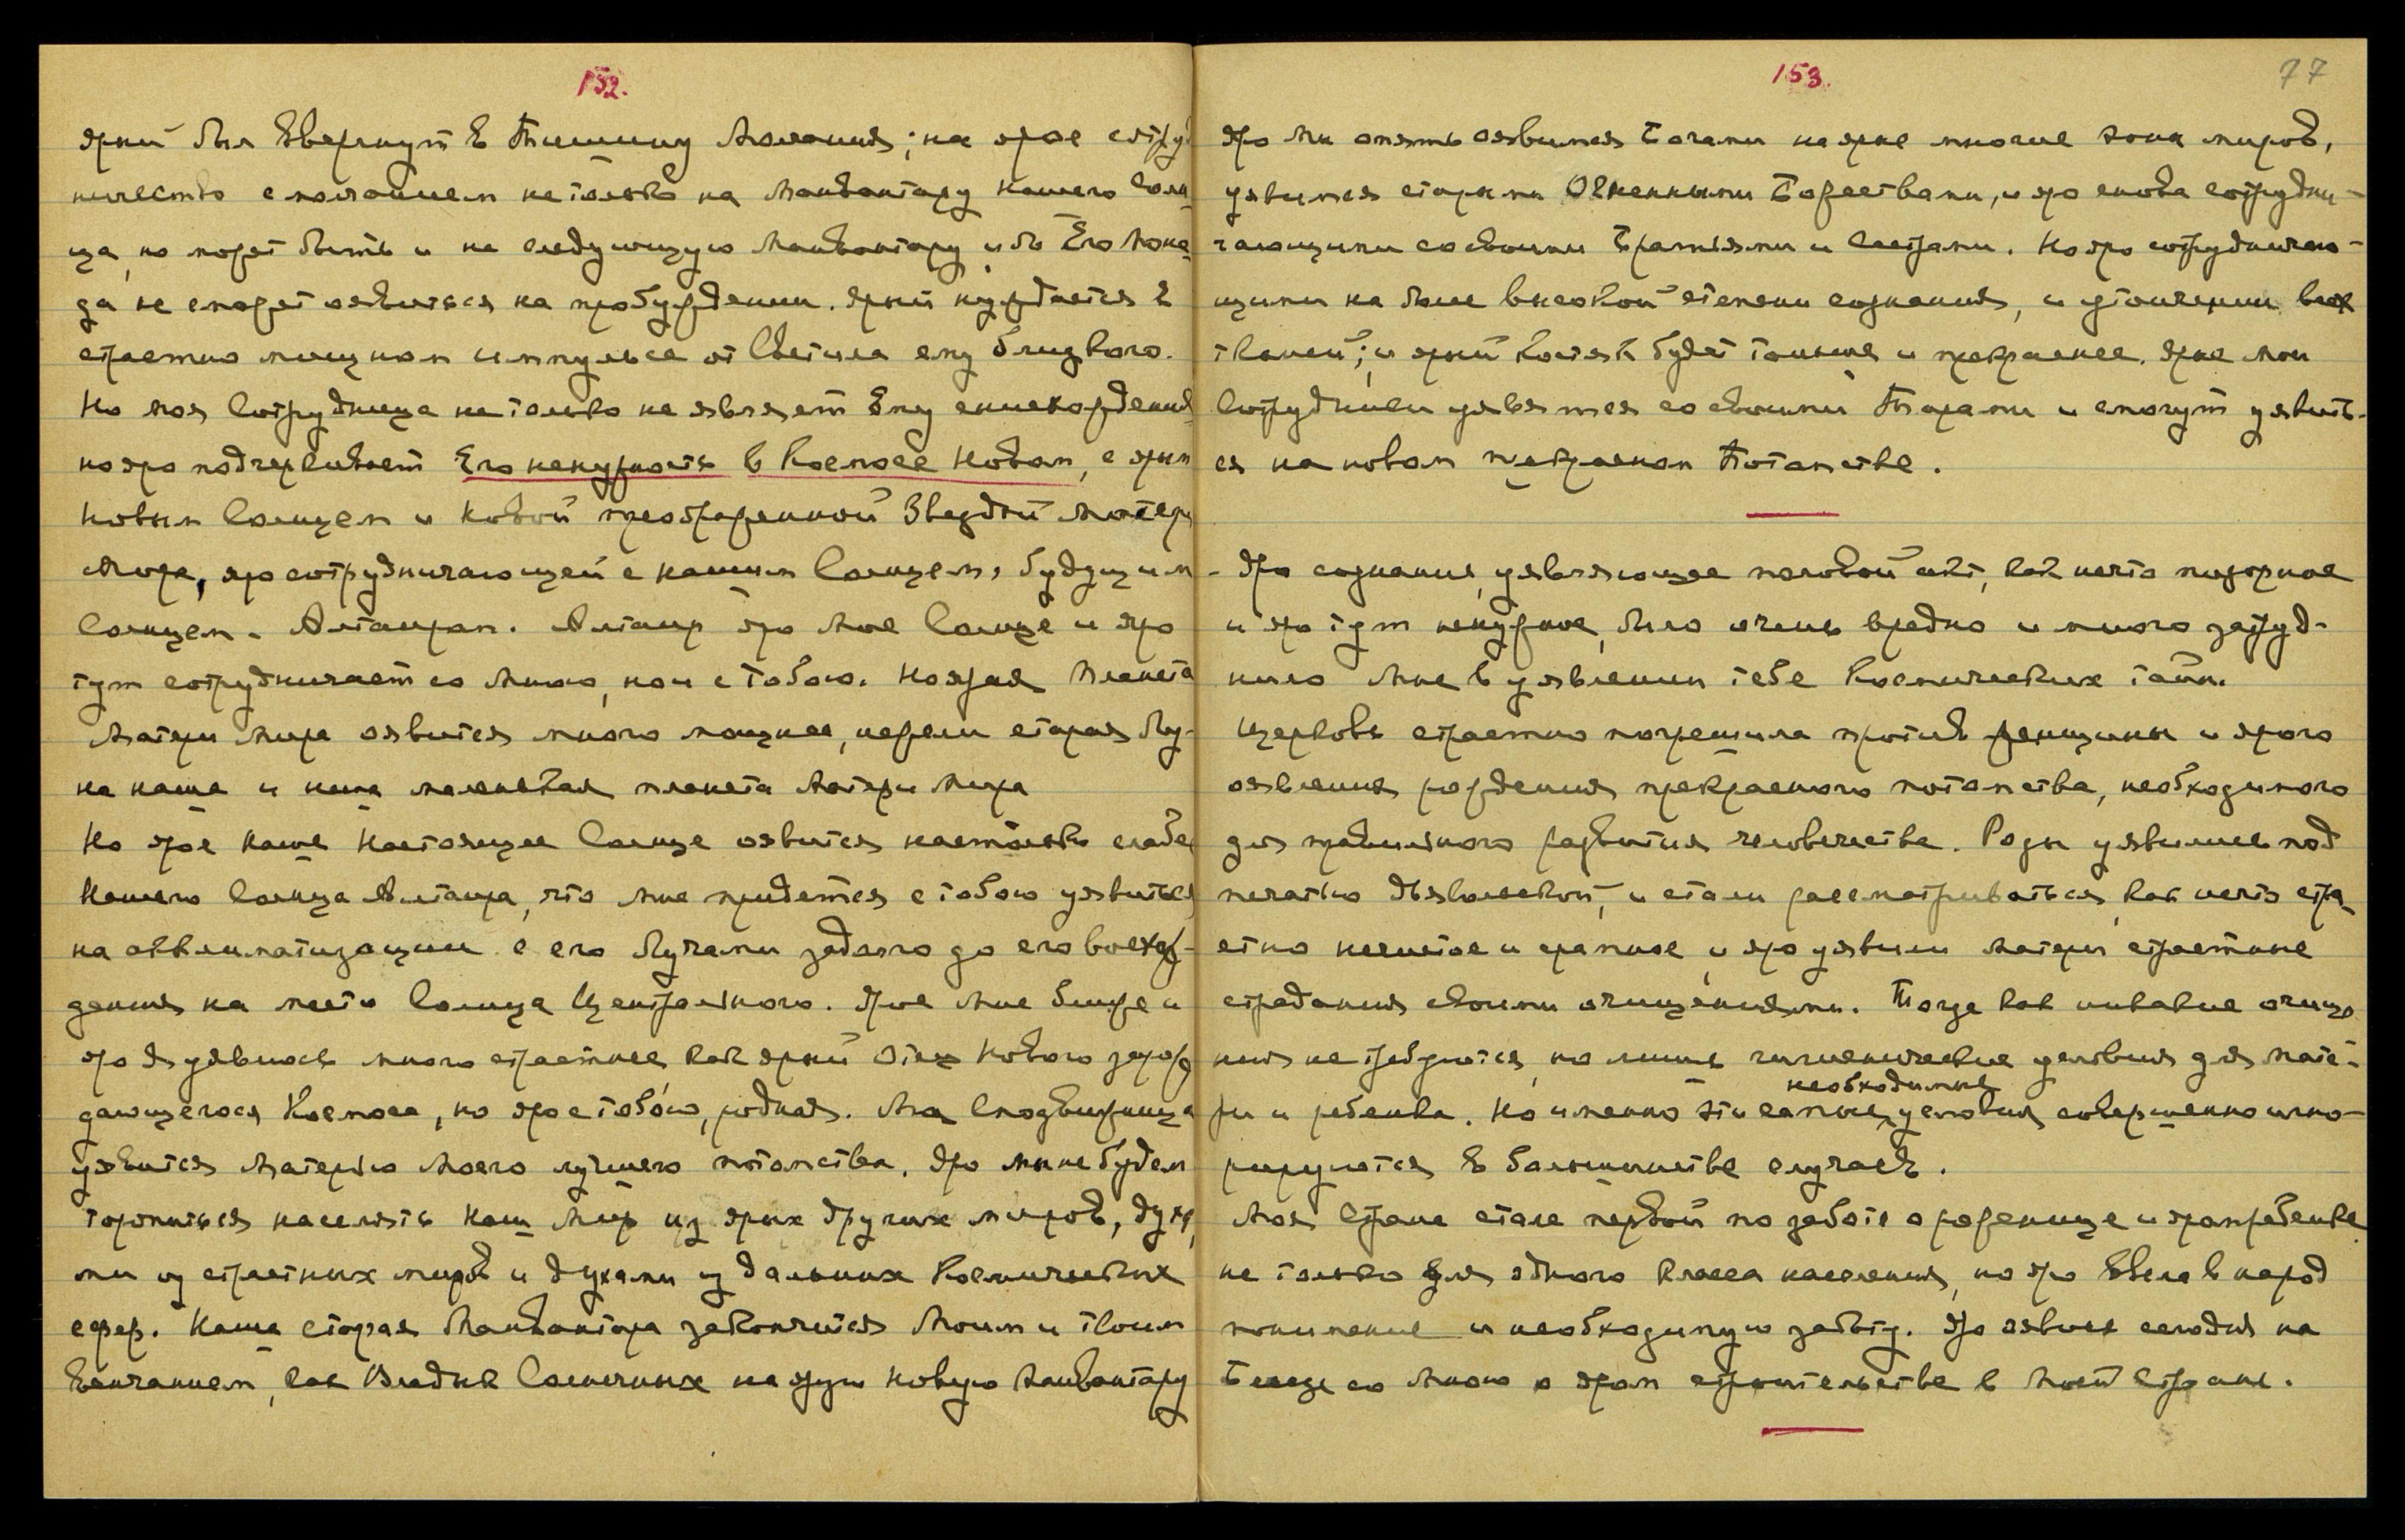 152.
ярый был ввергнут в Тишину Молчания; на ярое сотруд
ничество с молчанием не только на Манвантару нашего Солн
ца, но может быть и на следующую Манвантару, ибо Его Мона
да не сможет явиться на пробуждении. Ярый нуждается в
страстно мощном импульсе от Светила ему близкого.
Но моя Сотрудница не только не являет Ему снисхождения
но яро подчеркивает Его ненужность в Космосе Новом, с ярым
Новым Солнцем и Новой преображенной Звездой Матери
Мира, яро сотрудничающей с нашим Солнцем, будущим
Солнцем - Альтаиром. Альтаир яро Мое Солнце и яро
тут сотрудничает со Мною, но и с тобою. Но ярая Планета
Матери Мира оявится много мощнее, нежели старая Лу-
на наша и наша маленькая планета Матери Мира
Но ярое наше Настоящее Солнце оявится настолько слабее
Нашего Солнца Альтаира, что мне придется с тобою уявиться
на акклиматизации с его Лучами задолго до его восхож-
дения на место Солнца Центрального. Ярое Мне ближе и
яро Я уявлюсь много страстнее как ярый Отец Нового зарож
дающегося Космоса, но яро с тобою, родная. Моя Сподвижница
уявится Матерью Моего лучшего потомства. Яро мы не будем
торопиться населять Наш Мир из ярых других миров, духа
ми из страстных миров и духами из дальних Космических
сфер. Наша старая Манвантара закончится Моим и твоим
Венчанием, как Владык Солнечных на ярую Новую Манвантару
153.
77
Яро мы опять оявимся Богами на ярые многие зоны миров,
уявимся старыми Огненными Божествами, и яро снова сотрудни-
чающими со своими Братьями и Сестрами. Но яро сотруднича-
ющими на более высокой степени сознания, и утончении всех
тканей; и ярый костяк будет тоньше и прекраснее. Ярые мои
Сотрудники уявятся со своими Парами и смогут уявить-
ся на новом прекрасном Потомстве.
- Яро сознание, уявляющее половой акт, как нечто позорное
и яро тут ненужное, было очень вредно и много затруд-
нило Мне в уявлении тебе Космических тайн.
Церковь страстно погрешила против женщины и ярого
оявления рождения прекрасного потомства, необходимого
для правильного развития человечества. Роды уявились под
печатью дьявольской, и стали рассматриваться, как нечто стра
стно нечистое и срамное, и яро уявили Матери страстные
страдания своими очищениями. Тогда как никакие очище
ния не требуются, но лишь гигиенические условия для мате-
ри и ребенка. Но именно эти самые необходимые условия совершенно игно-
рируются в большинстве случаев.
Моя Страна стала первой по заботе о роженице и яром ребенке
не только для одного класса населения, но яро ввела в народ
понимание и необходимую заботу. Яро явись сегодня на
Беседе со Мною о яром строительстве в Моей Стране.